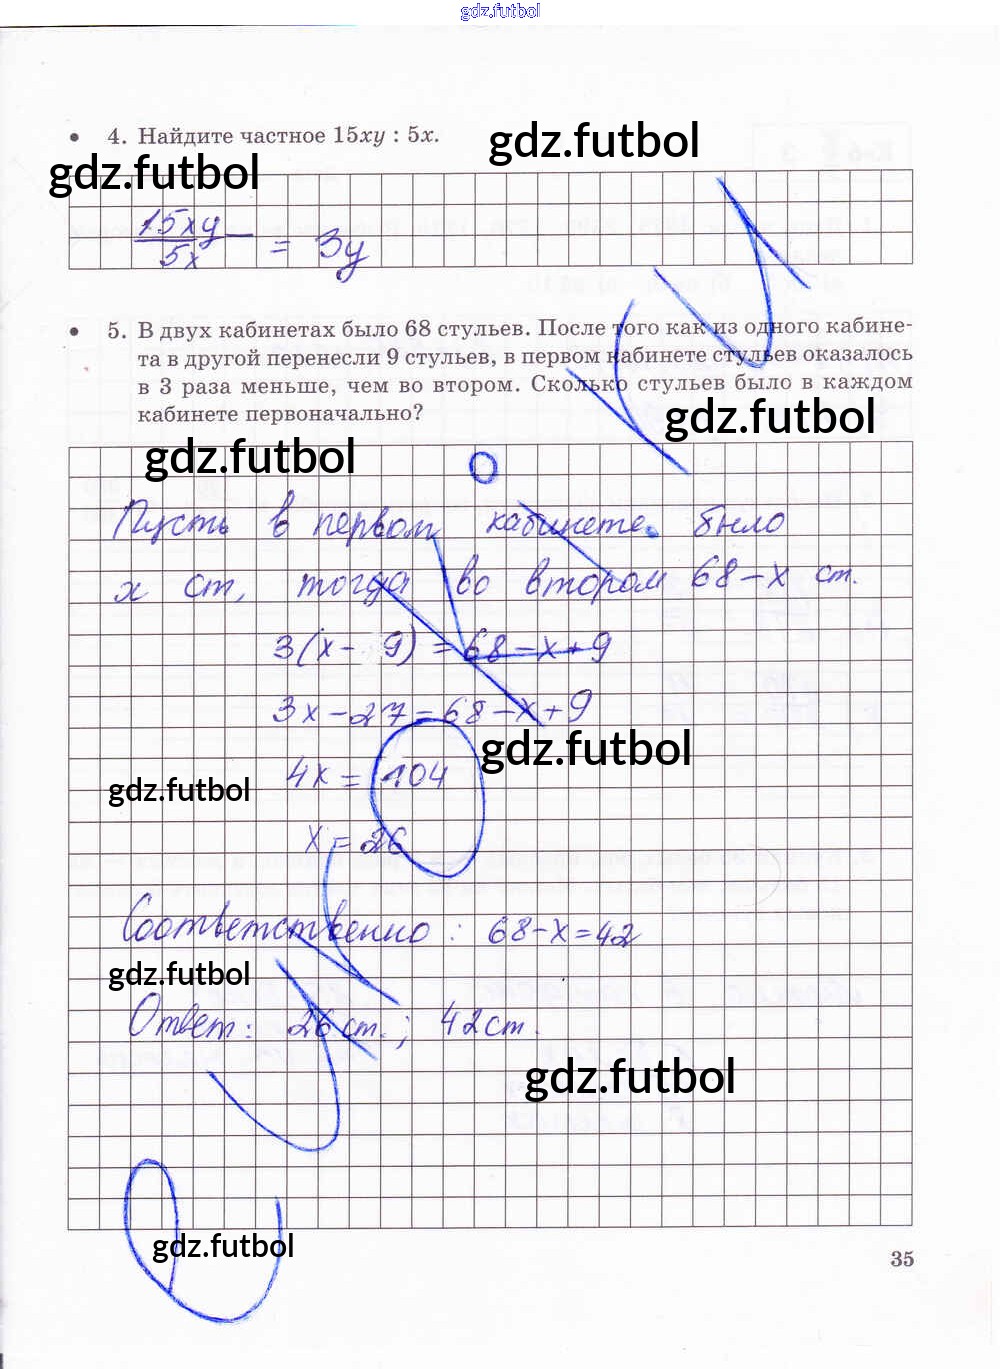 gdz.futbol
4. Найдите частное 15xy : 5x.
gdz.futbol
gdz.futbol
15xy
5x
= 3y
5. В двух кабинетах было 68 стульев. После того как из одного кабине-
та в другой перенесли 9 стульев, в первом кабинете стульев оказалось
в 3 раза меньше, чем во втором. Сколько стульев было в каждом
кабинете первоначально?
gdz.futbol
gdz.futbol
Пусть в первом кабинете было
x ст, тогда во втором 68-x ст.
3(x-9)=68-x+9
3x-27=68-x+9
gdz.futbol
4x=104
gdz.futbol
x=26
Соответственно: 68-x=42
gdz.futbol
Ответ: 26 ст.; 42 ст.
gdz.futbol
gdz.futbol
35